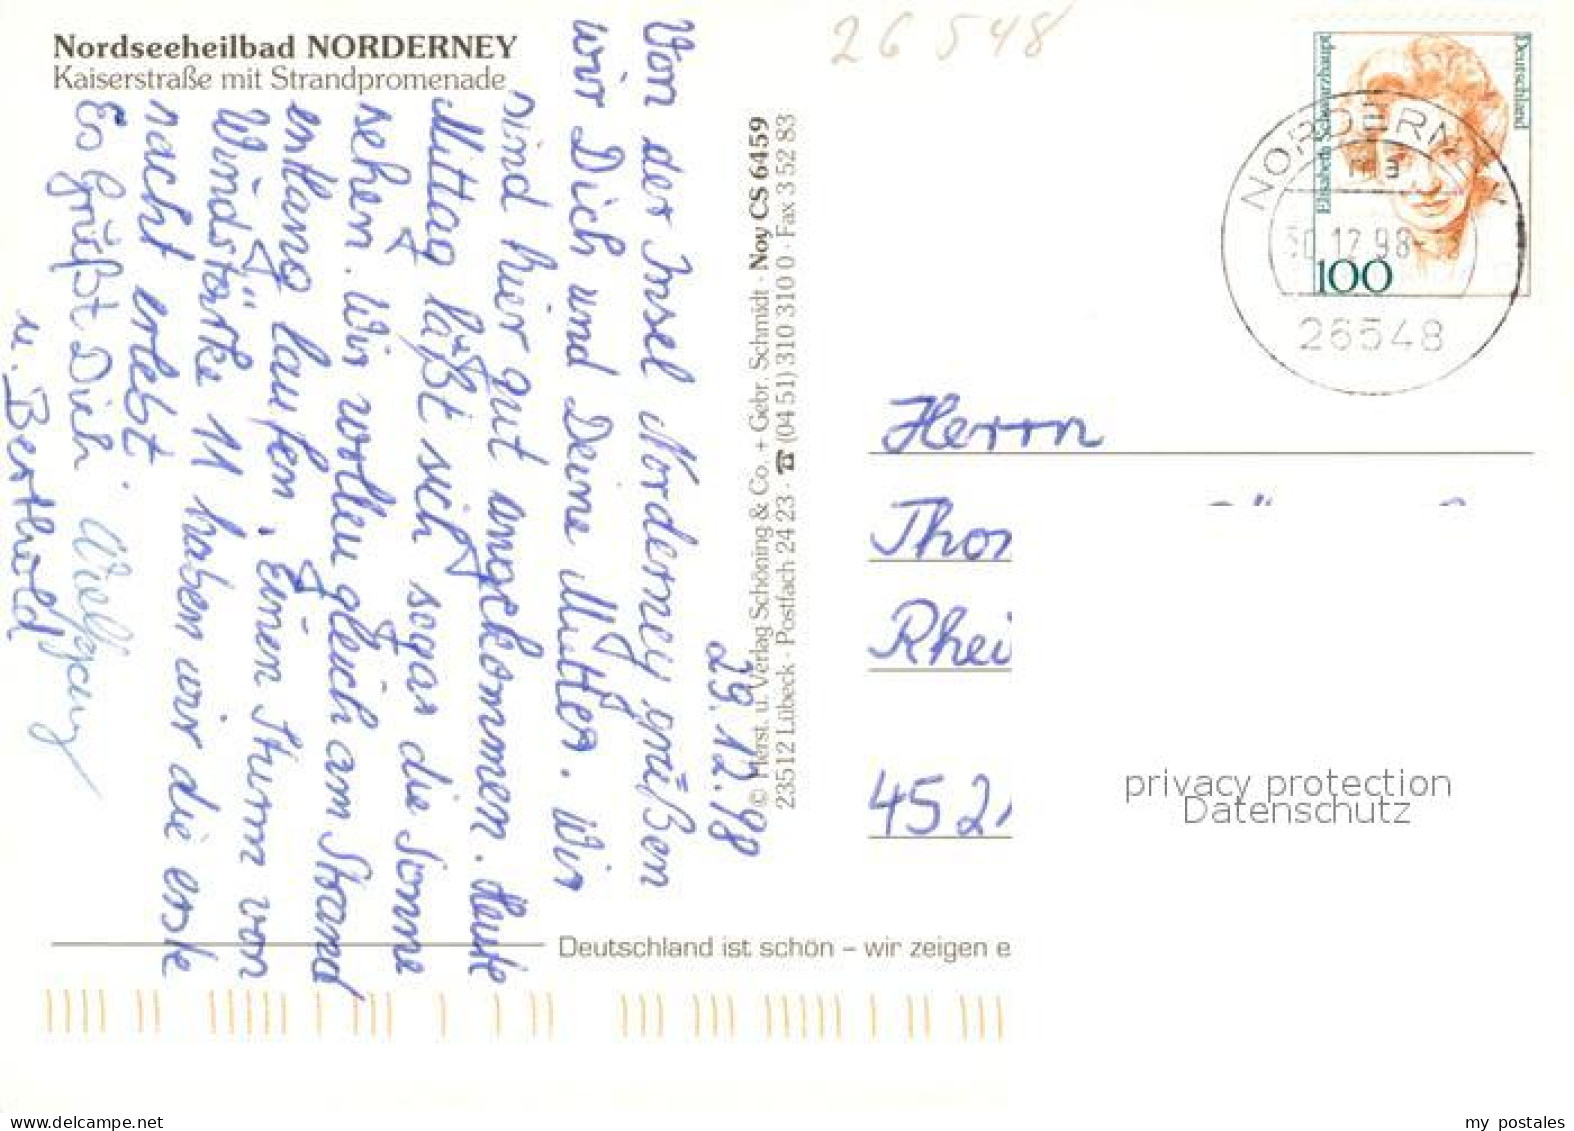 Nordseeheilbad NORDERNEY
Kaiserstraße mit Strandpromenade
26548
29.12.98
Von der Insel Norderney grüßen
wir Dich und Deine Mutter. Wir
sind hier gut angekommen. Heute
Mittag läßt sich sogar die Sonne
sehen. Wir wollen gleich am Strand
entlang laufen. Einen Sturm von
Windstärke 11 haben wir die erste
nacht erlebt.
Es grüßt Dich Wolfgang
u. Berthold
© Herst. u. Verlag Schöning & Co. + Gebr. Schmidt · Noy CS 6459
23512 Lübeck · Postfach 24 23 · ☎ (04 51) 310 310 0 · Fax 3 52 83
Deutschland
Elisabeth Schwarzhaupt
100
NORDERNEY
30.12.98
26548
Herrn
Thom
Rhei
452
privacy protection
Datenschutz
Deutschland ist schön – wir zeigen e
www.delcampe.net
my_postales